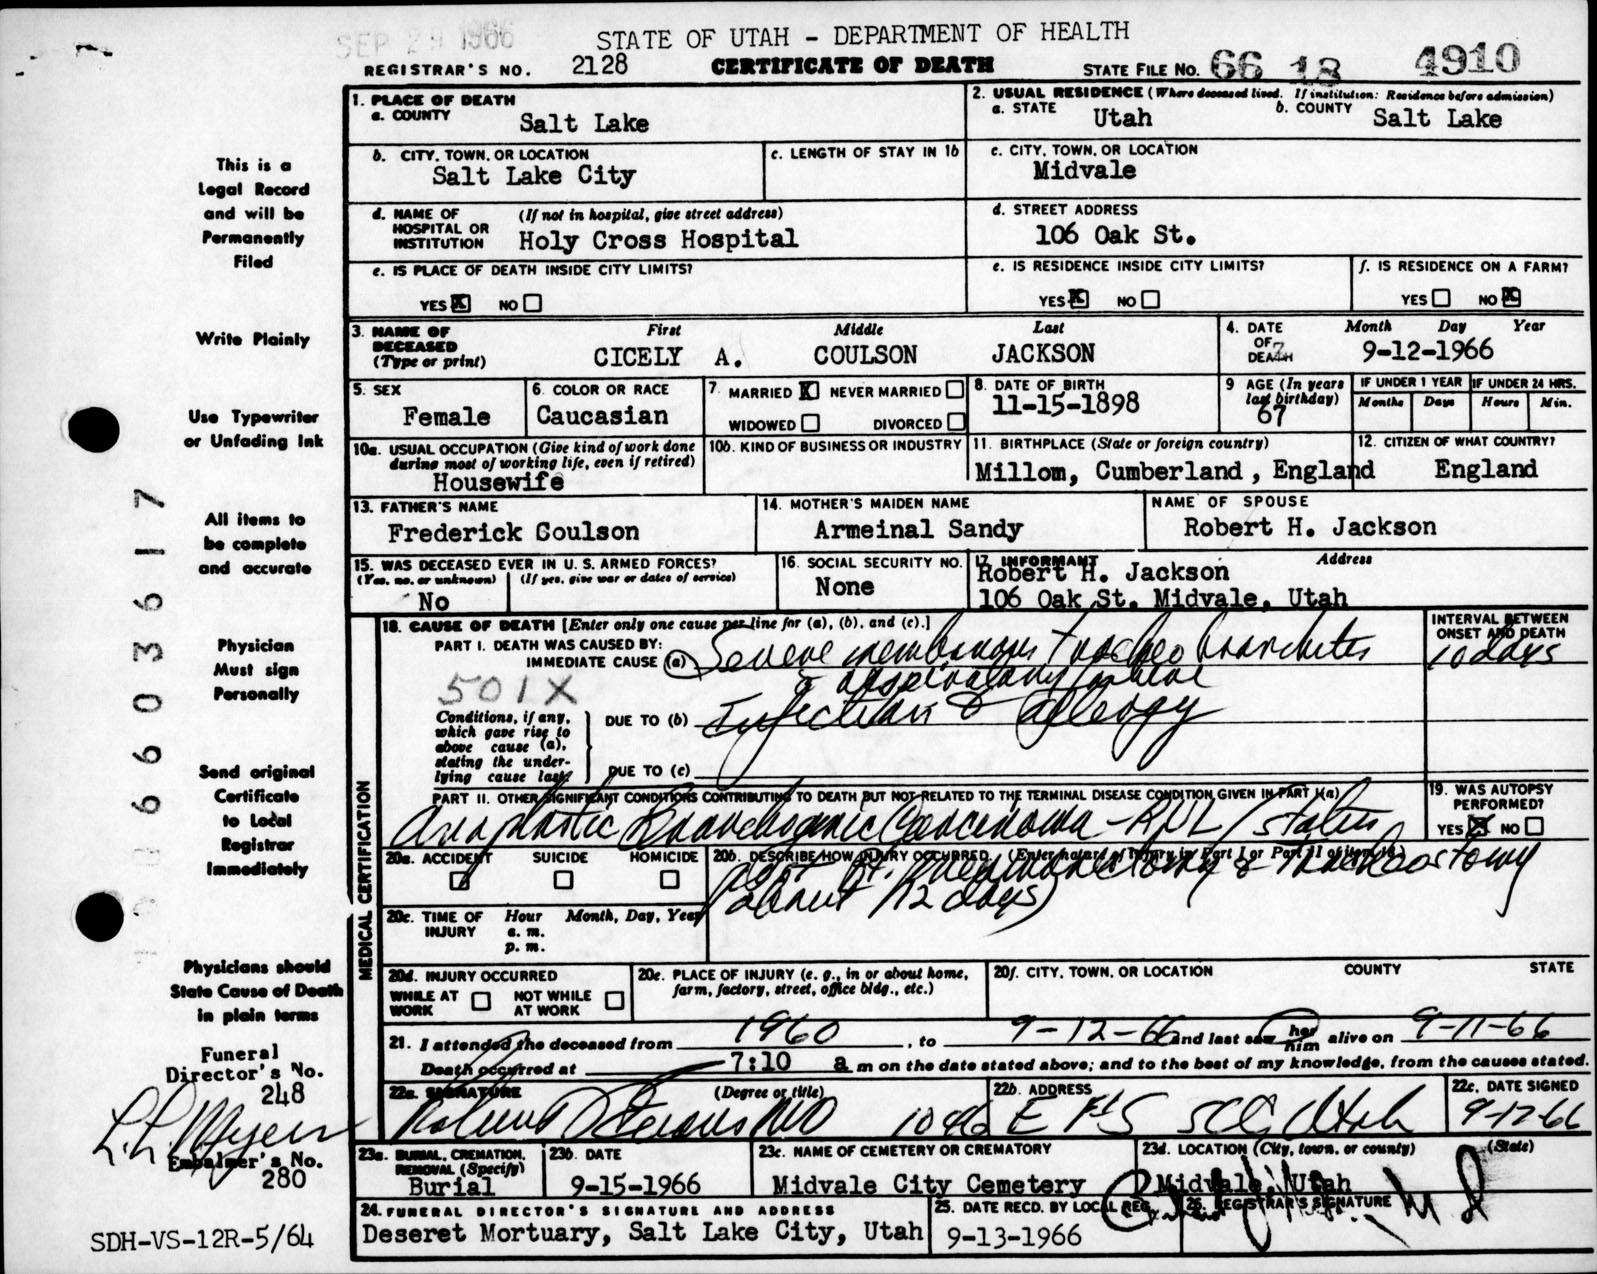 SEP 29 1966
STATE OF UTAH - DEPARTMENT OF HEALTH
REGISTRAR'S NO. 2128 CERTIFICATE OF DEATH STATE FILE NO. 66 18 4910
1. PLACE OF DEATH
a. COUNTY Salt Lake
2. USUAL RESIDENCE (Where deceased lived. If institution: Residence before admission)
a. STATE Utah b. COUNTY Salt Lake
b. CITY, TOWN, OR LOCATION Salt Lake City
c. LENGTH OF STAY IN 1b
c. CITY, TOWN, OR LOCATION Midvale
d. NAME OF HOSPITAL OR INSTITUTION (If not in hospital, give street address) Holy Cross Hospital
d. STREET ADDRESS 106 Oak St.
e. IS PLACE OF DEATH INSIDE CITY LIMITS?
YES X NO
e. IS RESIDENCE INSIDE CITY LIMITS?
YES X NO
f. IS RESIDENCE ON A FARM?
YES NO X
3. NAME OF DECEASED (Type or print) First Middle Last
CICELY A. COULSON JACKSON
4. DATE OF DEATH Month Day Year
9-12-1966
5. SEX Female
6. COLOR OR RACE Caucasian
7. MARRIED X NEVER MARRIED
WIDOWED DIVORCED
8. DATE OF BIRTH 11-15-1898
9 AGE (In years last birthday) 67
IF UNDER 1 YEAR Months Days
IF UNDER 24 HRS. Hours Min.
10a. USUAL OCCUPATION (Give kind of work done during most of working life, even if retired)
Housewife
10b. KIND OF BUSINESS OR INDUSTRY
11. BIRTHPLACE (State or foreign country)
Millom, Cumberland, England
12. CITIZEN OF WHAT COUNTRY?
England
13. FATHER'S NAME
Frederick Coulson
14. MOTHER'S MAIDEN NAME
Armeinal Sandy
NAME OF SPOUSE
Robert H. Jackson
15. WAS DECEASED EVER IN U. S. ARMED FORCES?
(Yes, no, or unknown) (If yes, give war or dates of service)
No
16. SOCIAL SECURITY NO.
None
17. INFORMANT Address
Robert H. Jackson
106 Oak St. Midvale, Utah
18. CAUSE OF DEATH [Enter only one cause per line for (a), (b), and (c).]
INTERVAL BETWEEN ONSET AND DEATH
PART I. DEATH WAS CAUSED BY:
IMMEDIATE CAUSE (a) Severe membranous tracheo bronchitis
10 days
& respiratory failure
501X
Conditions, if any, which gave rise to above cause (a), stating the underlying cause last.
DUE TO (b) Infection & allergy
DUE TO (c)
PART II. OTHER SIGNIFICANT CONDITIONS CONTRIBUTING TO DEATH BUT NOT RELATED TO THE TERMINAL DISEASE CONDITION GIVEN IN PART I(a)
Anaplastic Bronchogenic Carcinoma - RUL (status
post Rt. pneumonectomy & tracheostomy
about 12 days)
19. WAS AUTOPSY PERFORMED?
YES X NO
20a. ACCIDENT SUICIDE HOMICIDE
20b. DESCRIBE HOW INJURY OCCURRED. (Enter nature of injury in Part I or Part II of item 18.)
20c. TIME OF INJURY Hour Month, Day, Year
a. m.
p. m.
20d. INJURY OCCURRED
WHILE AT WORK NOT WHILE AT WORK
20e. PLACE OF INJURY (e. g., in or about home, farm, factory, street, office bldg., etc.)
20f. CITY, TOWN, OR LOCATION COUNTY STATE
21. I attended the deceased from 1960, to 9-12-66 and last saw her him alive on 9-11-66
Death occurred at 7:10 a m on the date stated above; and to the best of my knowledge, from the causes stated.
22a. SIGNATURE (Degree or title)
MD
22b. ADDRESS
1046 E 1st S SLC Utah
22c. DATE SIGNED
9-12-66
23a. BURIAL, CREMATION, REMOVAL (Specify)
Burial
23b. DATE
9-15-1966
23c. NAME OF CEMETERY OR CREMATORY
Midvale City Cemetery
23d. LOCATION (City, town, or county) (State)
Midvale, Utah
24. FUNERAL DIRECTOR'S SIGNATURE AND ADDRESS
Deseret Mortuary, Salt Lake City, Utah
25. DATE RECD. BY LOCAL REG.
9-13-1966
26. REGISTRAR'S SIGNATURE
MEDICAL CERTIFICATION
This is a
Legal Record
and will be
Permanently
Filed
Write Plainly
Use Typewriter
or Unfading Ink
All items to
be complete
and accurate
Physician
Must sign
Personally
Send original
Certificate
to Local
Registrar
immediately
Physicians should
State Cause of Death
in plain terms
Funeral
Director's No.
248
L. L. Myers
Embalmer's No.
280
SDH-VS-12R-5/64